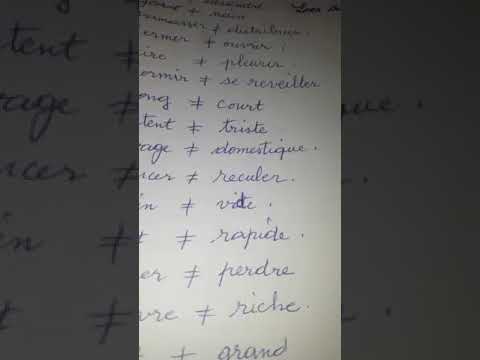 ≠ distribuer.
ermer ≠ ouvrir.
ire ≠ pleurer.
ormir ≠ se reveiller
ong ≠ court
tent ≠ triste
vage ≠ domestique.
ncer ≠ reculer.
in ≠ vite.
t ≠ rapide.
er ≠ perdre
vre ≠ riche.
≠ grand